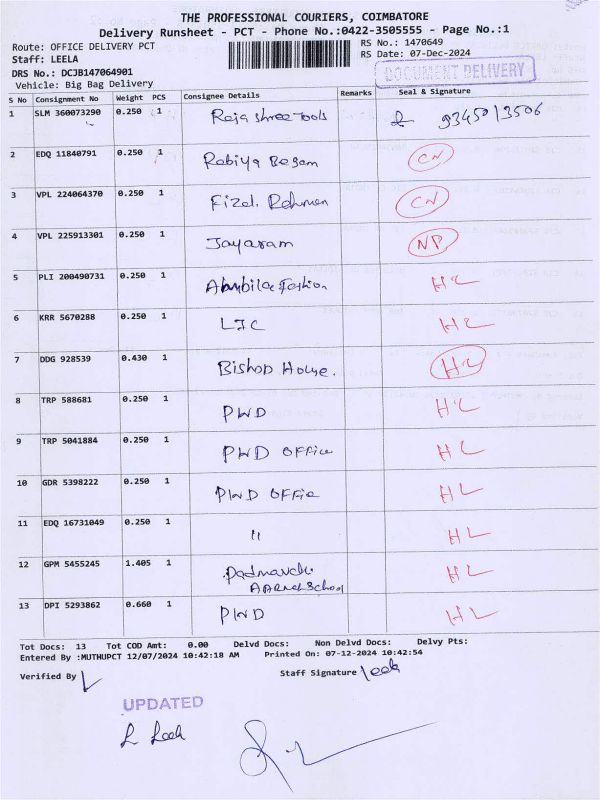 THE PROFESSIONAL COURIERS, COIMBATORE
Delivery Runsheet - PCT - Phone No.:0422-3505555 - Page No.:1
Route: OFFICE DELIVERY PCT RS No.: 1470649
Staff: LEELA RS Date: 07-Dec-2024
DRS No.: DCJB147064901 DOCUMENT DELIVERY
Vehicle: Big Bag Delivery
S No Consignment No Weight PCS Consignee Details Remarks Seal & Signature
1 SLM 360073290 0.250 1 Raja Shree Tools 93450 13506
2 EDQ 11840791 0.250 1 Rabiya Begam CN
3 VPL 224064370 0.250 1 Fizal. Rahman CN
4 VPL 225913301 0.250 1 Jayaram NP
5 PLI 200490731 0.250 1 Fashion HL
6 KRR 5670288 0.250 1 LIC HL
7 DDG 928539 0.430 1 Bishop House. HL
8 TRP 588681 0.250 1 PWD HL
9 TRP 5041884 0.250 1 PWD OFFice HL
10 GDR 5398222 0.250 1 PWD OFFice HL
11 EDQ 16731049 0.250 1 " HL
12 GPM 5455245 1.405 1 HL
School
13 DPI 5293862 0.660 1 PWD HL
Tot Docs: 13 Tot COD Amt: 0.00 Delvd Docs: Non Delvd Docs: Delvy Pts:
Entered By :MUTHUPCT 12/07/2024 10:42:18 AM Printed On: 07-12-2024 10:42:54
Verified By Staff Signature Leela
UPDATED
Leela